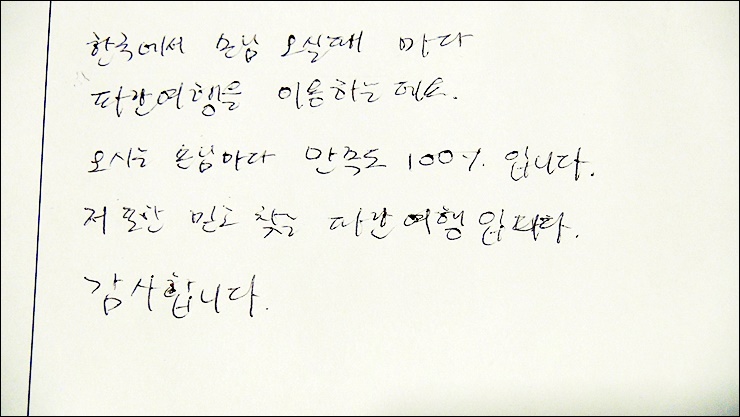 한국에서 손님 오실때 마다
파란여행을 이용하는데요.
오시는 손님마다 만족도 100% 입니다.
저 또한 믿고 찾는 파란여행입니다.
감사합니다.